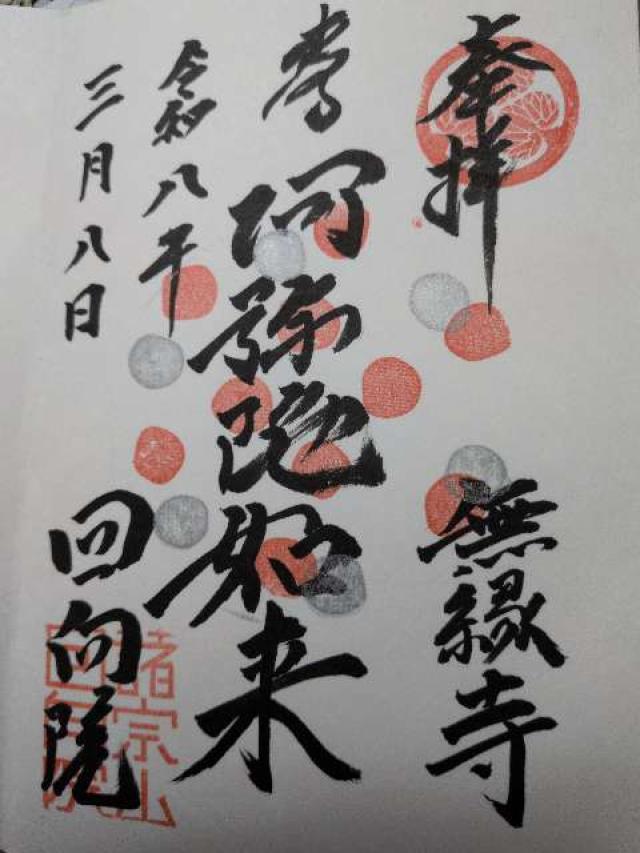 奉拝
無縁寺
阿弥陀如来
令和八年
三月八日
回向院
諸宗山
回向院